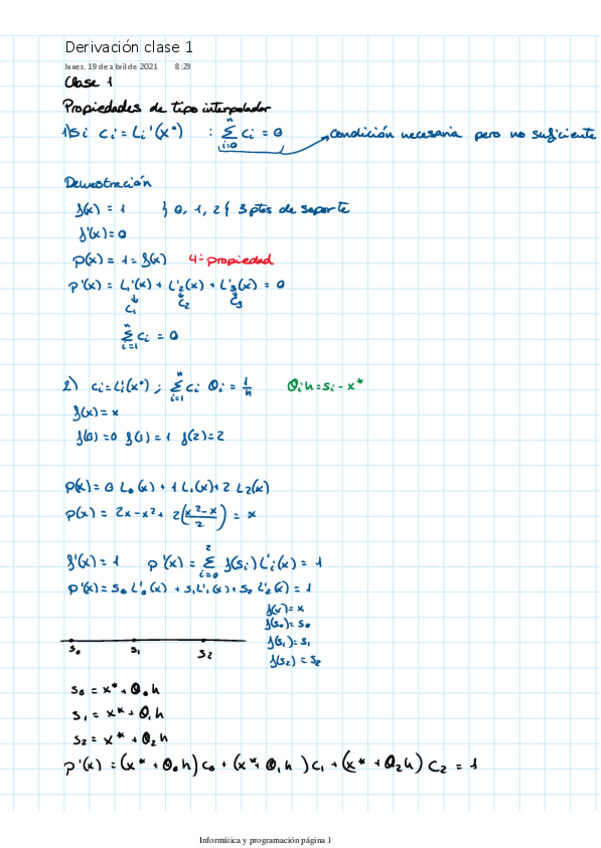 Derivación clase 1
lunes, 19 de abril de 2021 8:23
Clase 1
Propiedades de tipo interpolador
1) Si ci = Li'(x*) : Σ_{i=0}^{n} ci = 0 → condición necesaria pero no suficiente
Demostración
f(x) = 1 } 0, 1, 2 { 3 ptos de soporte
f'(x) = 0
p(x) = 1 = f(x) 4ª propiedad
p'(x) = L'1(x) + L'2(x) + L'3(x) = 0
↓ ↓ ↓
c1 c2 c3
Σ_{i=1}^{n} ci = 0
2) ci = Li'(x*) ; Σ_{i=1}^{n} ci θi = 1/h θi h = si - x*
f(x) = x
f(0) = 0 f(1) = 1 f(2) = 2
p(x) = 0 L0(x) + 1 L1(x) + 2 L2(x)
p(x) = 2x - x² + 2((x² - x)/2) = x
f'(x) = 1 p'(x) = Σ_{i=0}^{2} f(si) L'i(x) = 1
p'(x) = s0 L'0(x) + s1 L'1(x) + s2 L'2(x) = 1
f(x) = x
f(s0) = s0
f(s1) = s1
f(s2) = s2
s0 s1 s2
s0 = x* + θ0 h
s1 = x* + θ1 h
s2 = x* + θ2 h
p'(x) = (x* + θ0 h) c0 + (x* + θ1 h) c1 + (x* + θ2 h) c2 = 1
Informática y programación página 1